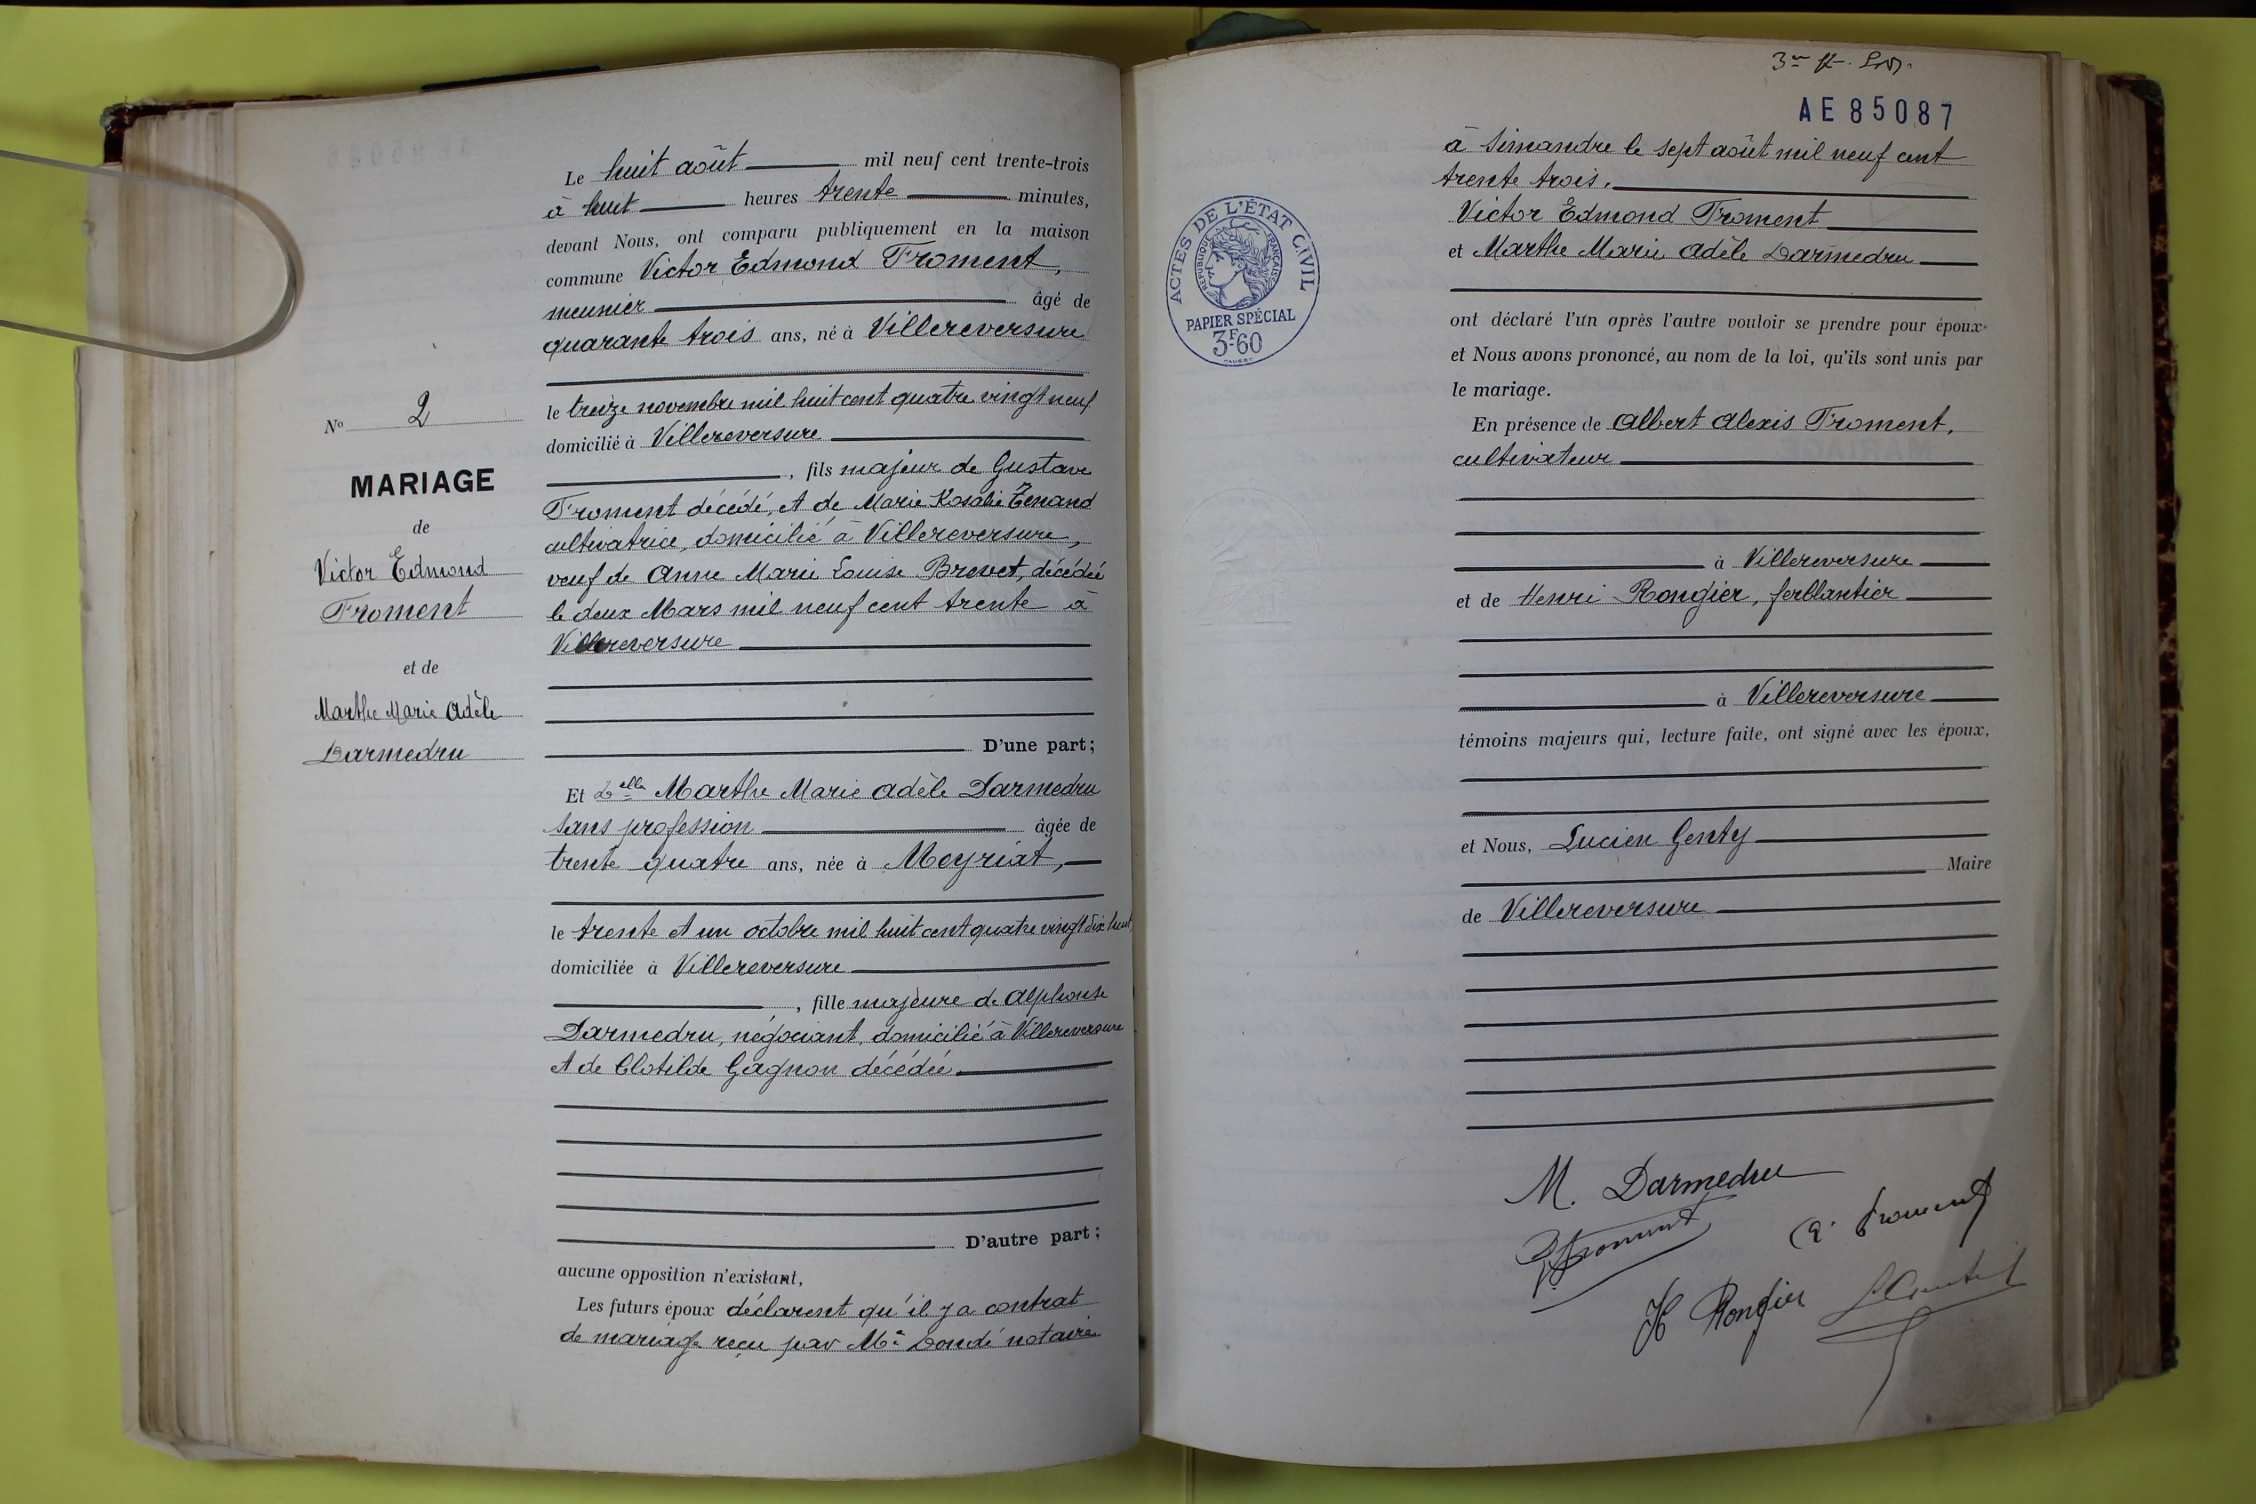 Le huit août mil neuf cent trente-trois
à huit heures trente minutes,
devant Nous, ont comparu publiquement en la maison
commune Victor Edmond Froment,
meunier âgé de
quarante trois ans, né à Villereversure
le treize novembre mil huit cent quatre vingt neuf
domicilié à Villereversure
, fils majeur de Gustave
Froment décédé, et de Marie Rosalie Tenand
cultivatrice, domicilié à Villereversure,
veuf de Anne Marie Louise Brevet, décédée
le deux Mars mil neuf cent trente à
Villereversure
D'une part;
Nº 2
MARIAGE
de
Victor Edmond
Froment
et de
Marthe Marie Adèle
Darmedru
Et Delle Marthe Marie Adèle Darmedru
sans profession âgée de
trente quatre ans, née à Meyriat,
le trente et un octobre mil huit cent quatre vingt dix huit,
domiciliée à Villereversure
, fille majeure de Alphonse
Darmedru, négociant, domicilié à Villereversure
et de Clotilde Gagnon décédée
D'autre part;
aucune opposition n'existant,
Les futurs époux déclarent qu'il y a contrat
de mariage reçu par Me Dondé notaire
AE85087
à Simandre le sept août mil neuf cent
trente trois.
Victor Edmond Froment
et Marthe Marie Adèle Darmedru
ont déclaré l'un après l'autre vouloir se prendre pour époux
et Nous avons prononcé, au nom de la loi, qu'ils sont unis par
le mariage.
En présence de Albert Alexis Froment,
cultivateur
à Villereversure
et de Henri Rongier, ferblantier
à Villereversure
témoins majeurs qui, lecture faite, ont signé avec les époux,
et Nous, Lucien Genty
Maire
de Villereversure
ACTES DE L'ÉTAT CIVIL
RÉPUBLIQUE FRANÇAISE
PAPIER SPÉCIAL
3F60
M. Darmedru
Froment
A. Froment
H Rongier